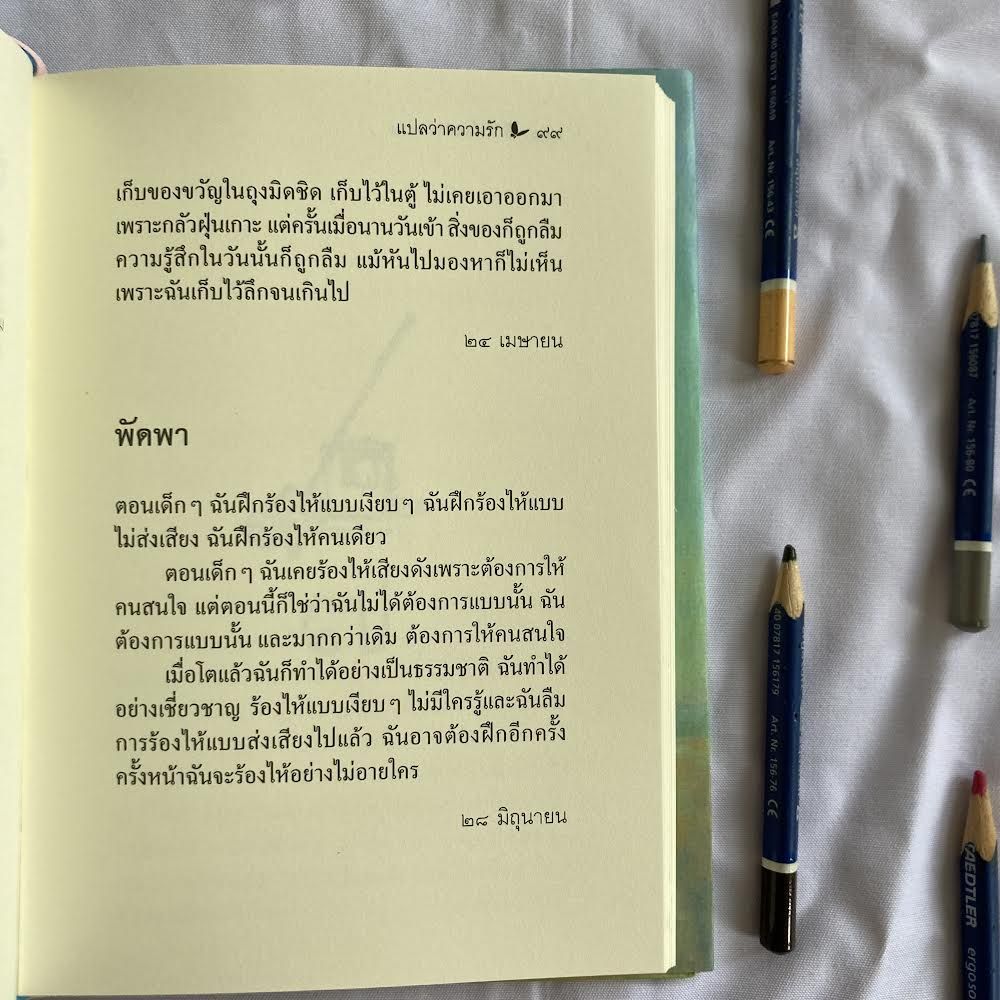 แปลว่าความรัก ๙๙
เก็บของขวัญในถุงมิดชิด เก็บไว้ในตู้ ไม่เคยเอาออกมา
เพราะกลัวฝุ่นเกาะ แต่ครั้นเมื่อนานวันเข้า สิ่งของก็ถูกลืม
ความรู้สึกในวันนั้นก็ถูกลืม แม้หันไปมองหาก็ไม่เห็น
เพราะฉันเก็บไว้ลึกจนเกินไป
๒๔ เมษายน
พัดพา
ตอนเด็ก ๆ ฉันฝึกร้องไห้แบบเงียบ ๆ ฉันฝึกร้องไห้แบบ
ไม่ส่งเสียง ฉันฝึกร้องไห้คนเดียว
ตอนเด็ก ๆ ฉันเคยร้องไห้เสียงดังเพราะต้องการให้
คนสนใจ แต่ตอนนี้ก็ใช่ว่าฉันไม่ได้ต้องการแบบนั้น ฉัน
ต้องการแบบนั้น และมากกว่าเดิม ต้องการให้คนสนใจ
เมื่อโตแล้วฉันก็ทำได้อย่างเป็นธรรมชาติ ฉันทำได้
อย่างเชี่ยวชาญ ร้องไห้แบบเงียบ ๆ ไม่มีใครรู้และฉันลืม
การร้องไห้แบบส่งเสียงไปแล้ว ฉันอาจต้องฝึกอีกครั้ง
ครั้งหน้าฉันจะร้องไห้อย่างไม่อายใคร
๒๘ มิถุนายน
EAN 40 07817 156049 Art. Nr. 156-43 CE
07817 156087 Art. Nr. 156-80 CE
40 07817 156179 Art. Nr. 156-76 CE
TAEDTLER ergoso